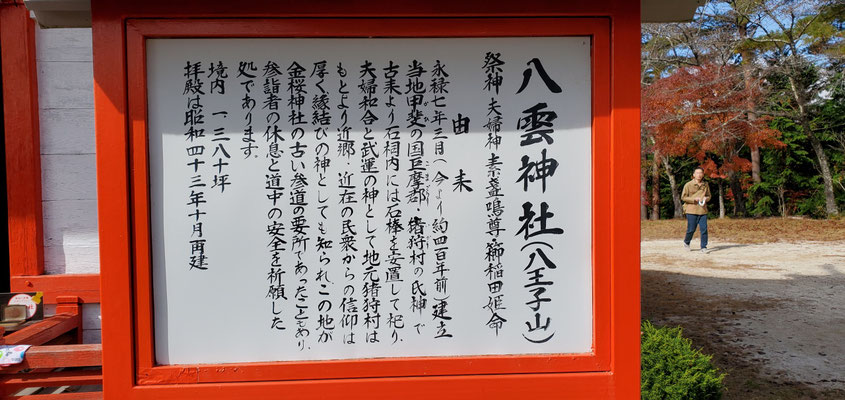 八雲神社(八王子山)
祭神 夫婦神 素盞鳴尊 櫛稲田姫命
由来
永禄七年三月(今より約四百年前)建立
当地甲斐の国巨摩郡猪狩村の氏神で
古来より石祠内には石棒を安置して祀り、
夫婦和合と武運の神として地元猪狩村は
もとより近郷、近在の民衆からの信仰は
厚く縁結びの神としても知られこの地が
金桜神社の古い参道の要所であったこともあり、
参詣者の休息と道中の安全を祈願した
処であります。
境内 一、三八〇坪
拝殿は昭和四十三年十月再建